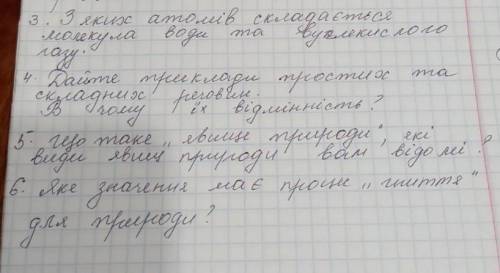 3. З яких атомів складається
молекула води та вуглекислого
газу.
4. Дайте приклади простих та
складних речовин.
В чому їх відмінність?
5. Що таке „явище природи", які
види явищ природи вам відомі?
6. Яке значення має процес „гниття"
для природи?